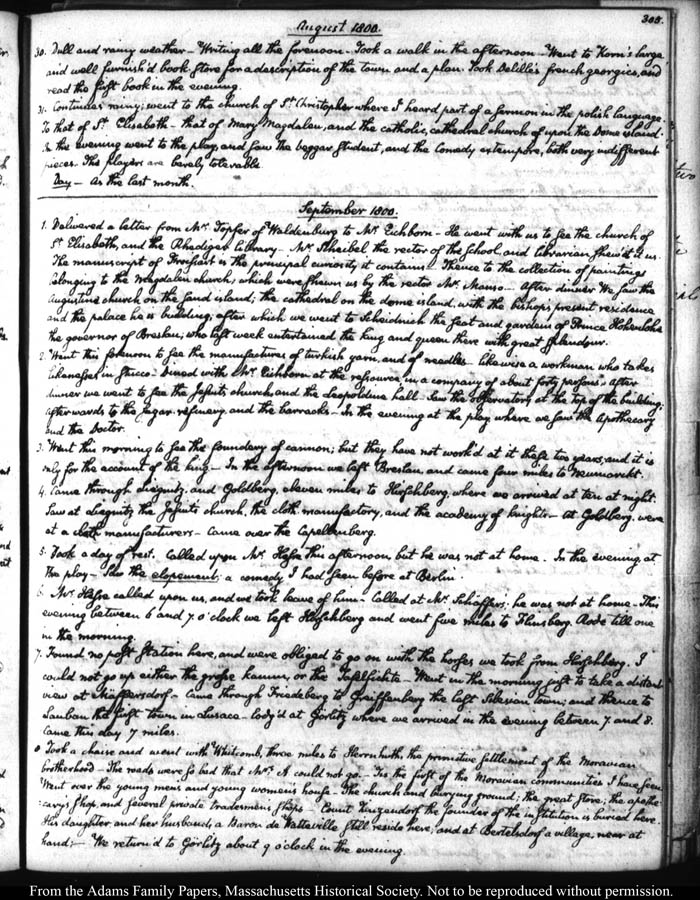 August 1800.
305.
30. Dull and rainy weather — Writing all the forenoon. Took a walk in the afternoon. Went to Korn's large
and well furnish'd book store for a description of the town and a plan. Took Delille's french georgics, and
read the first book in the evening.
31. Continues rainy; went to the church of St. Christopher where I heard part of a sermon in the polish language.
To that of St. Elisabeth — that of Mary Magdalen, and the catholic, cathedral church of upon the Dome island.
In the evening went to the play, and saw the beggar student, and the Comedy extempore, both very indifferent
pieces. The players are barely tolerable.
Day — As the last month.
September 1800.
1. Delivered a letter from Mr. Topfer of Waldenburg to Mr. Eichborn — He went with us to see the church of
St. Elisabeth, and the Rhediger Library — Mr. Scheibel the rector of the school, and librarian shew'd it us.
The manuscript of Froissart is the principal curiosity it contains. Thence to the collection of paintings
belonging to the Magdalen church; which were shewn us by the rector Mr. Manso — After dinner We saw the
Augustine church on the sand island; the cathedral on the dome island, with the bishop's present residence
and the palace he is building; after which we went to Scheidnich the seat and gardens of Prince Hohenlohe
the governor of Breslau; who last week entertained the king and queen there with great splendour.
2. Went this forenoon to see the manufactures of turkish yarn, and of needles — likewise a workman who takes
likenesses in stucco. Dined with Mr. Eichborn at the ressource, in a company of about forty persons. After
dinner we went to see the Jesuits church, and the Leopoldine hall. Saw the observatory at the top of the building;
afterwards to the sugar refinery, and the barracks — In the evening at the play where we saw the Apothecary
and the Doctor.
3. Went this morning to see the foundery of cannon; but they have not work'd at it these two years, and it is
only for the account of the king — In the afternoon we left Breslau, and came four miles to Neumarkt.
4. Came through Liegnitz, and Goldberg, eleven miles to Hirschberg, where we arrived at ten at night.
Saw at Liegnitz the Jesuits church, the cloth manufactory, and the academy of knights — at Goldberg, were
at a cloth manufacturers — Came over the Capellenberg.
5. Took a day of rest. Called upon Mr. Hesse this afternoon, but he was not at home. In the evening, at
the play — Saw the elopement; a comedy I had seen before at Berlin.
6. Mr. Hesse called upon us, and we took leave of him — Called at Mr. Schäffers; he was not at home — This
evening between 6 and 7. o'clock we left Hirschberg and went five miles to Flinsberg. Rode till one
in the morning.
7. Found no post station here, and were obliged to go on with the horses we took from Hirschberg. I
could not go up either the grosse kamm, or the Tafelfichte — Went in the morning just to take a distant
view at — Came through Friedeberg to Greiffenberg the last Silesian town; and thence to
Lauban the first town in Lusace — lodg'd at Görlitz where we arrived in the evening between 7 and 8.
Came this day 7 miles.
8 Took a chaise and went with Whitcomb, three miles to Herrnhuth, the primitive settlement of the Moravian
brotherhood — The roads were so bad that Mrs. A could not go. — 'Tis the first of the Moravian communities I have seen.
Went over the young mens and young womens house. The church and burying ground; the great store; the apothe-
cary's shop, and several private tradesmen's shops — Count Zinzendorf the founder of the institution is buried here.
His daughter, and her husband, a Baron de Watteville still reside here; and at Bertelsdorf a village, near at
hand; — We return'd to Görlitz about 9 o'clock in the evening.
From the Adams Family Papers, Massachusetts Historical Society. Not to be reproduced without permission.